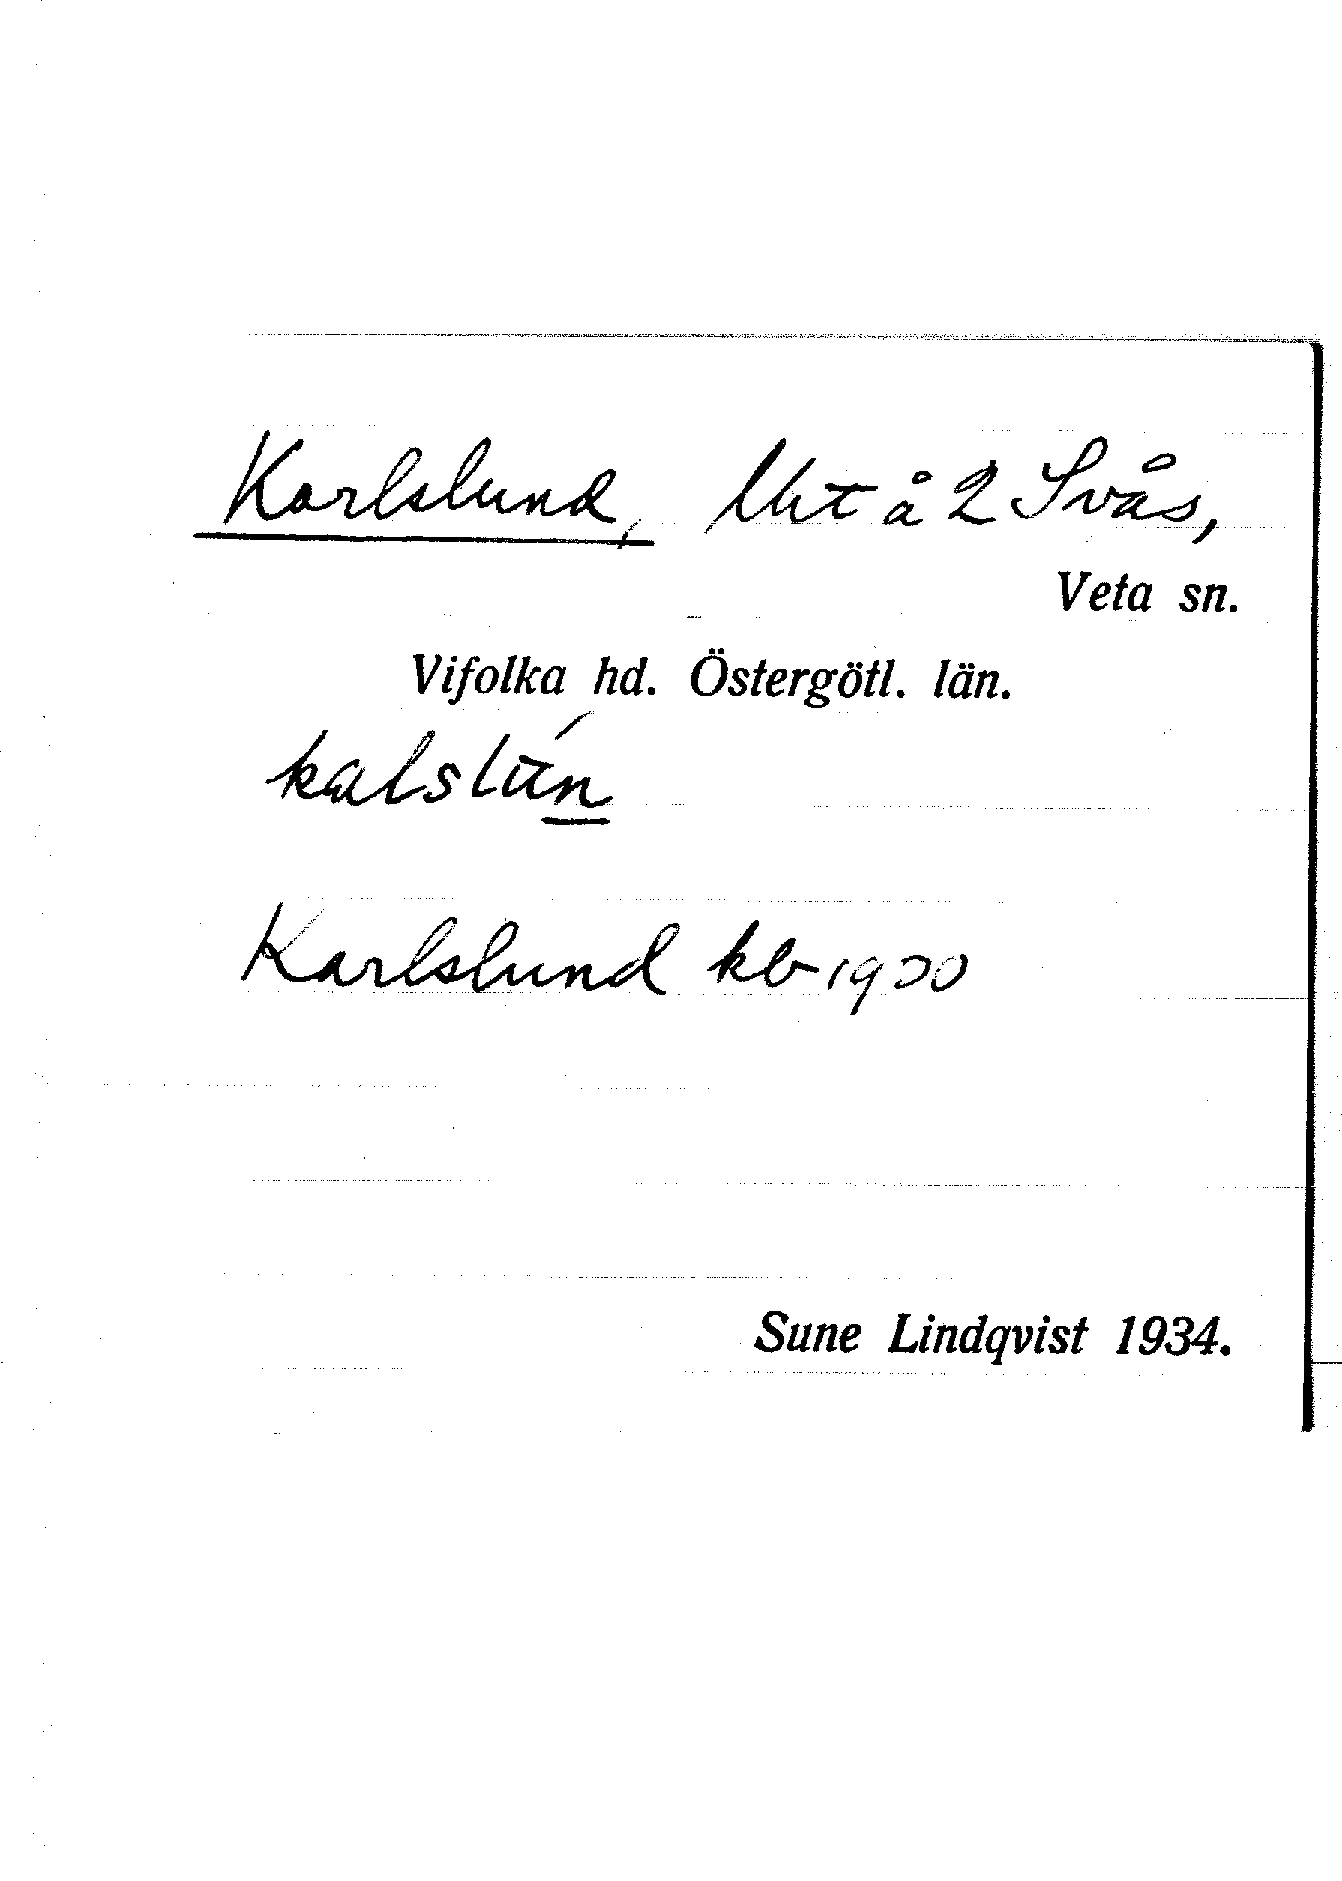 Karlslund, lht å 2 Svås,
Veta sn.
Vifolka hd. Östergötl. län.
kalslún
Karlslund kb 1900
Sune Lindqvist 1934.